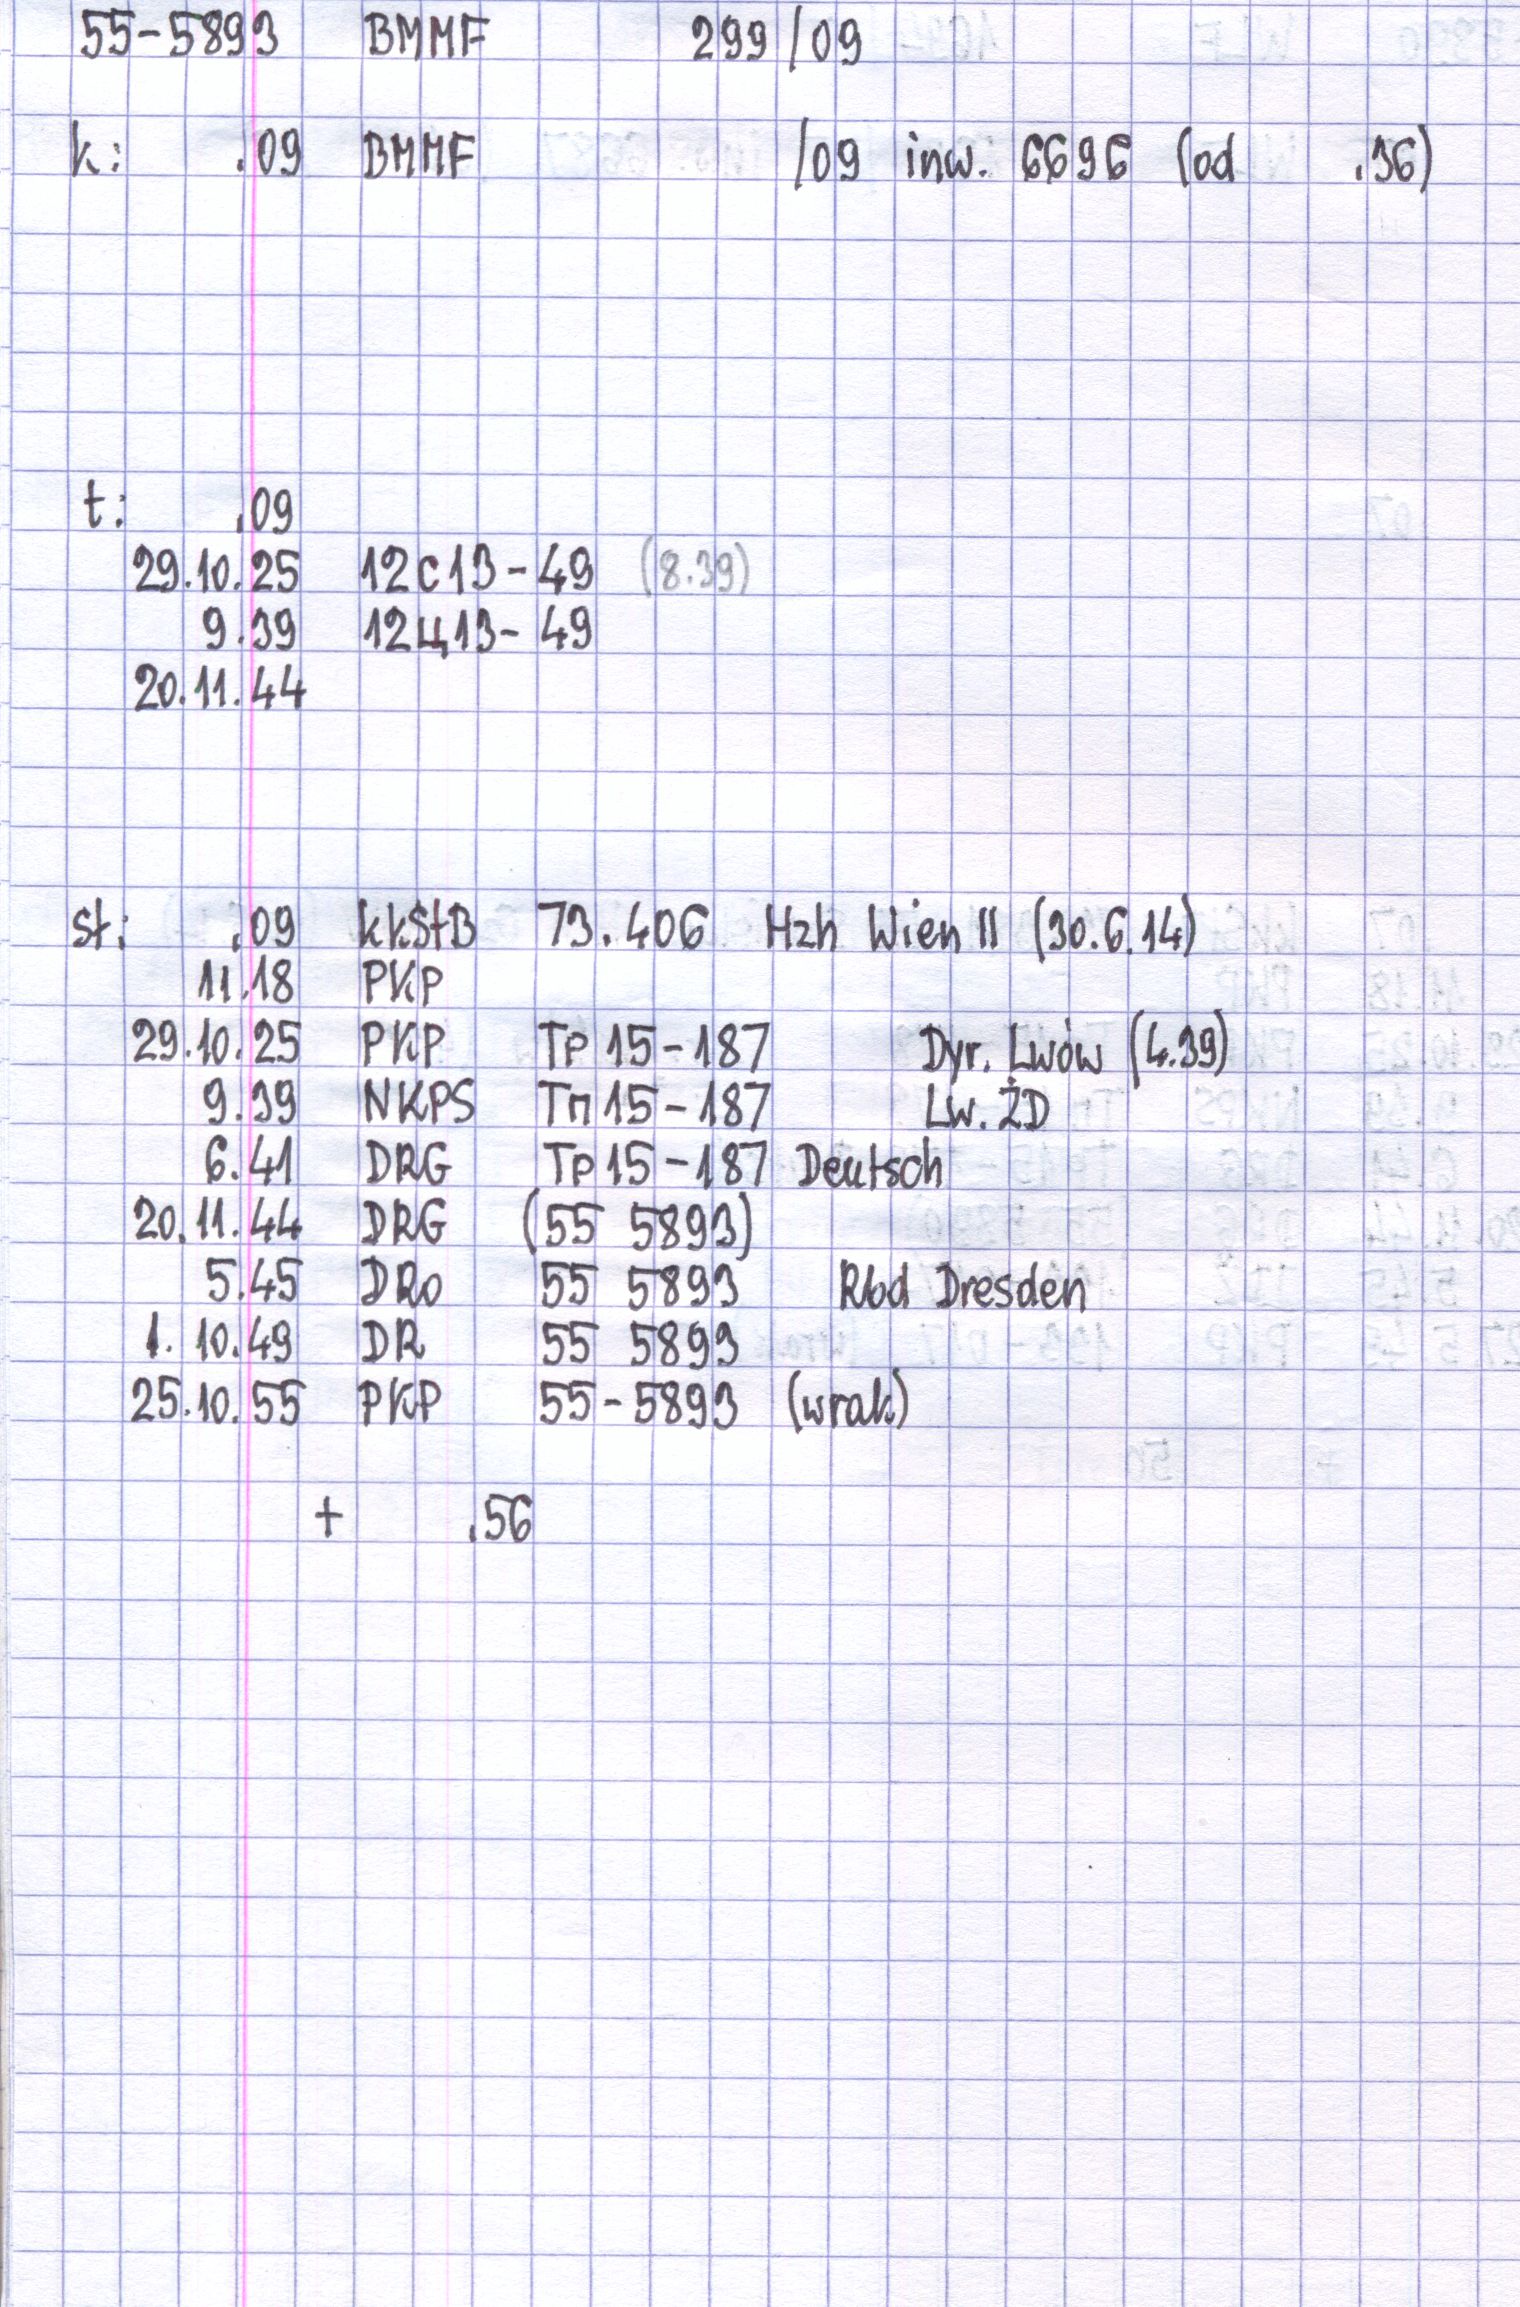 55-5893 BMMF 299/09
k: .09 BMMF /09 inw. 6696 (od .36)
t: .09
29.10.25 12c13-49 (8.39)
9.39 12ц13-49
20.11.44
st: .09 kkStB 73.406 Hzh Wien II (30.6.14)
11.18 PKP
29.10.25 PKP Tp15-187 Dyr. Lwów (4.39)
9.39 NKPS Тп15-187 Lw. ŻD
6.41 DRG Tp15-187 Deutsch
20.11.44 DRG (55 5893)
5.45 DRo 55 5893 Rbd Dresden
1.10.49 DR 55 5893
25.10.55 PKP 55-5893 (wrak)
+ .56